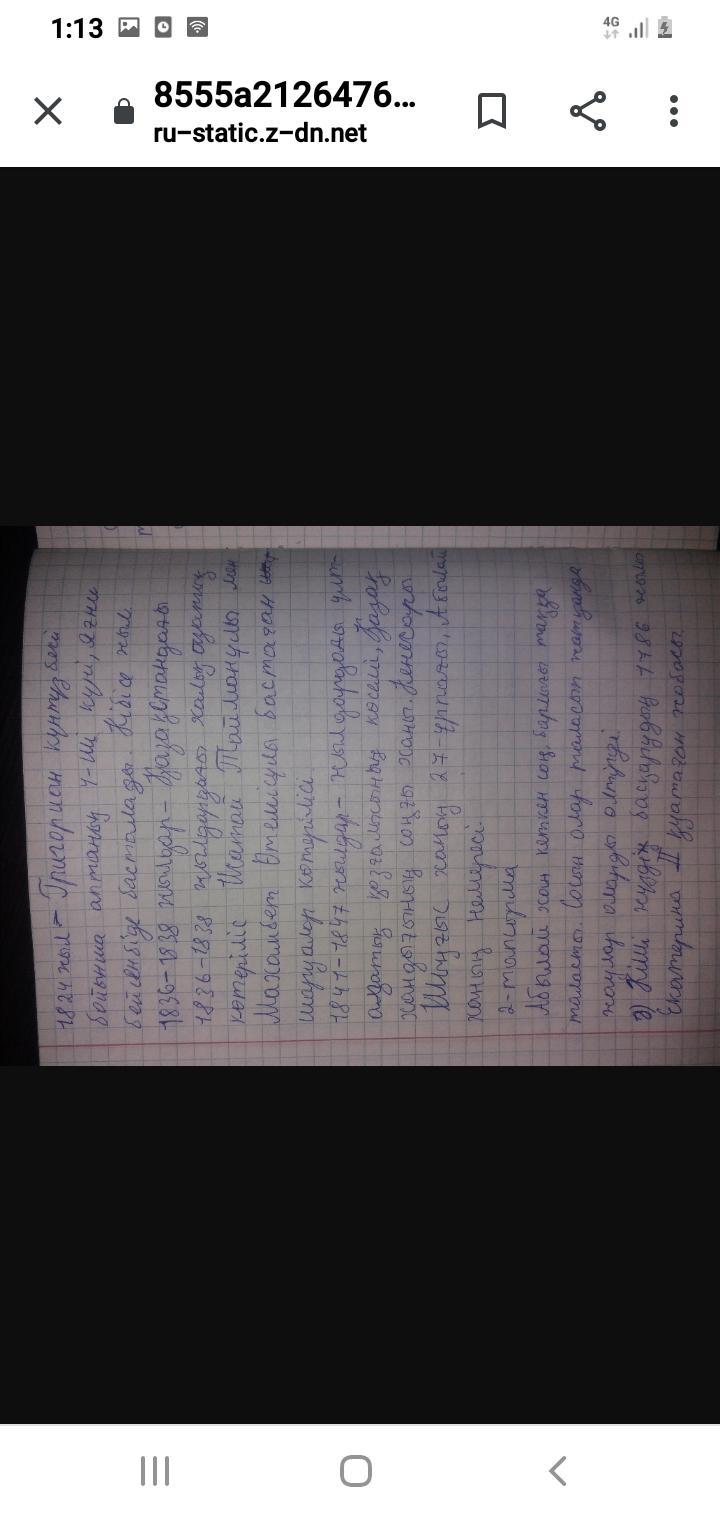 1:13
4G
8555a2126476...
ru-static.z-dn.net
1824 жыл - Григориан күнтүзбесі
бойынша аптаның 4-ші күні, яғни
бейсенбіде басталады. Кібісе жыл.
1836-1838 жылдар - Қазақстандағы
1836-1838 жылдардағы халық азаттық
көтеріліс Исатай Тайманұлы мен
Махамбет Өтемісұлы бастаған
шаруалар көтерілісі.
1841-1847 жылдар - жылдардағы ұлт-
азаттық қозғалысының көсемі, Қазақ
хандығының соңғы ханы. Кенесары
Шыңғыс ханың 27-ұрпағы, Абылай
ханың немересі.
2-тапсырма
Абылай хан кеткен соң, барлығы таққа
таласты. Сосын олар таласып жатқанда
жаулар оларды өлтірді.
Кіші жүздің басқарудың 1786 жылы
Екатерина II қуатаған жобасы